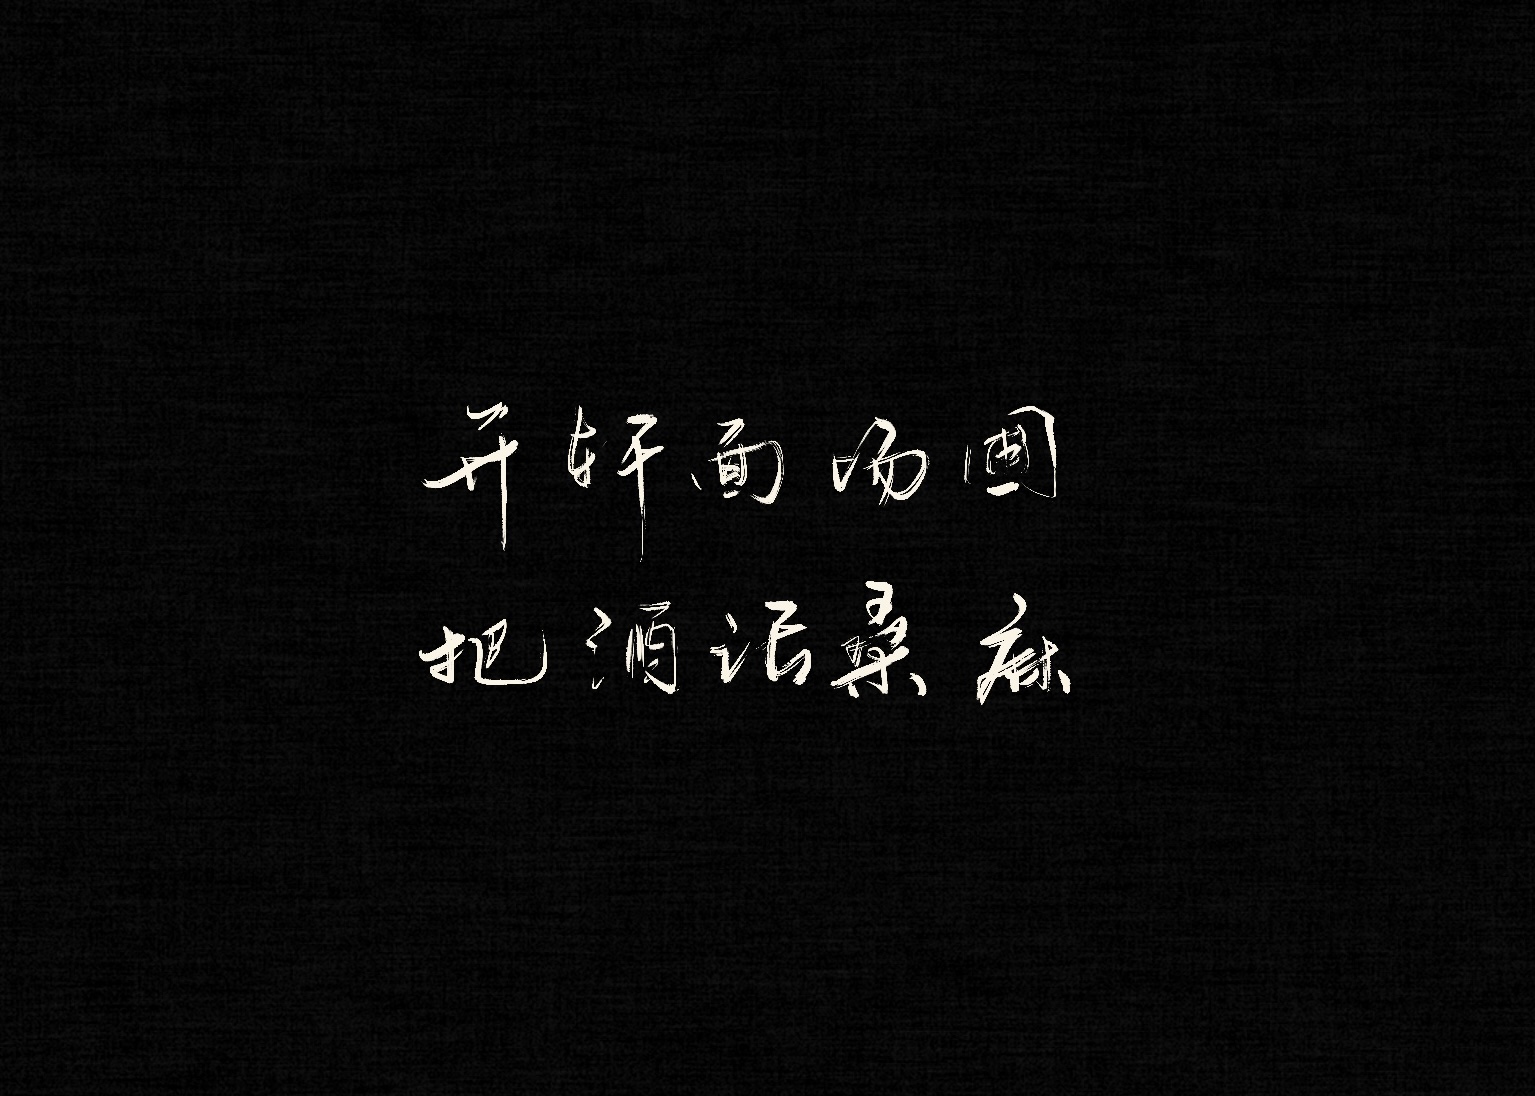 开轩面场圃
把酒话桑麻